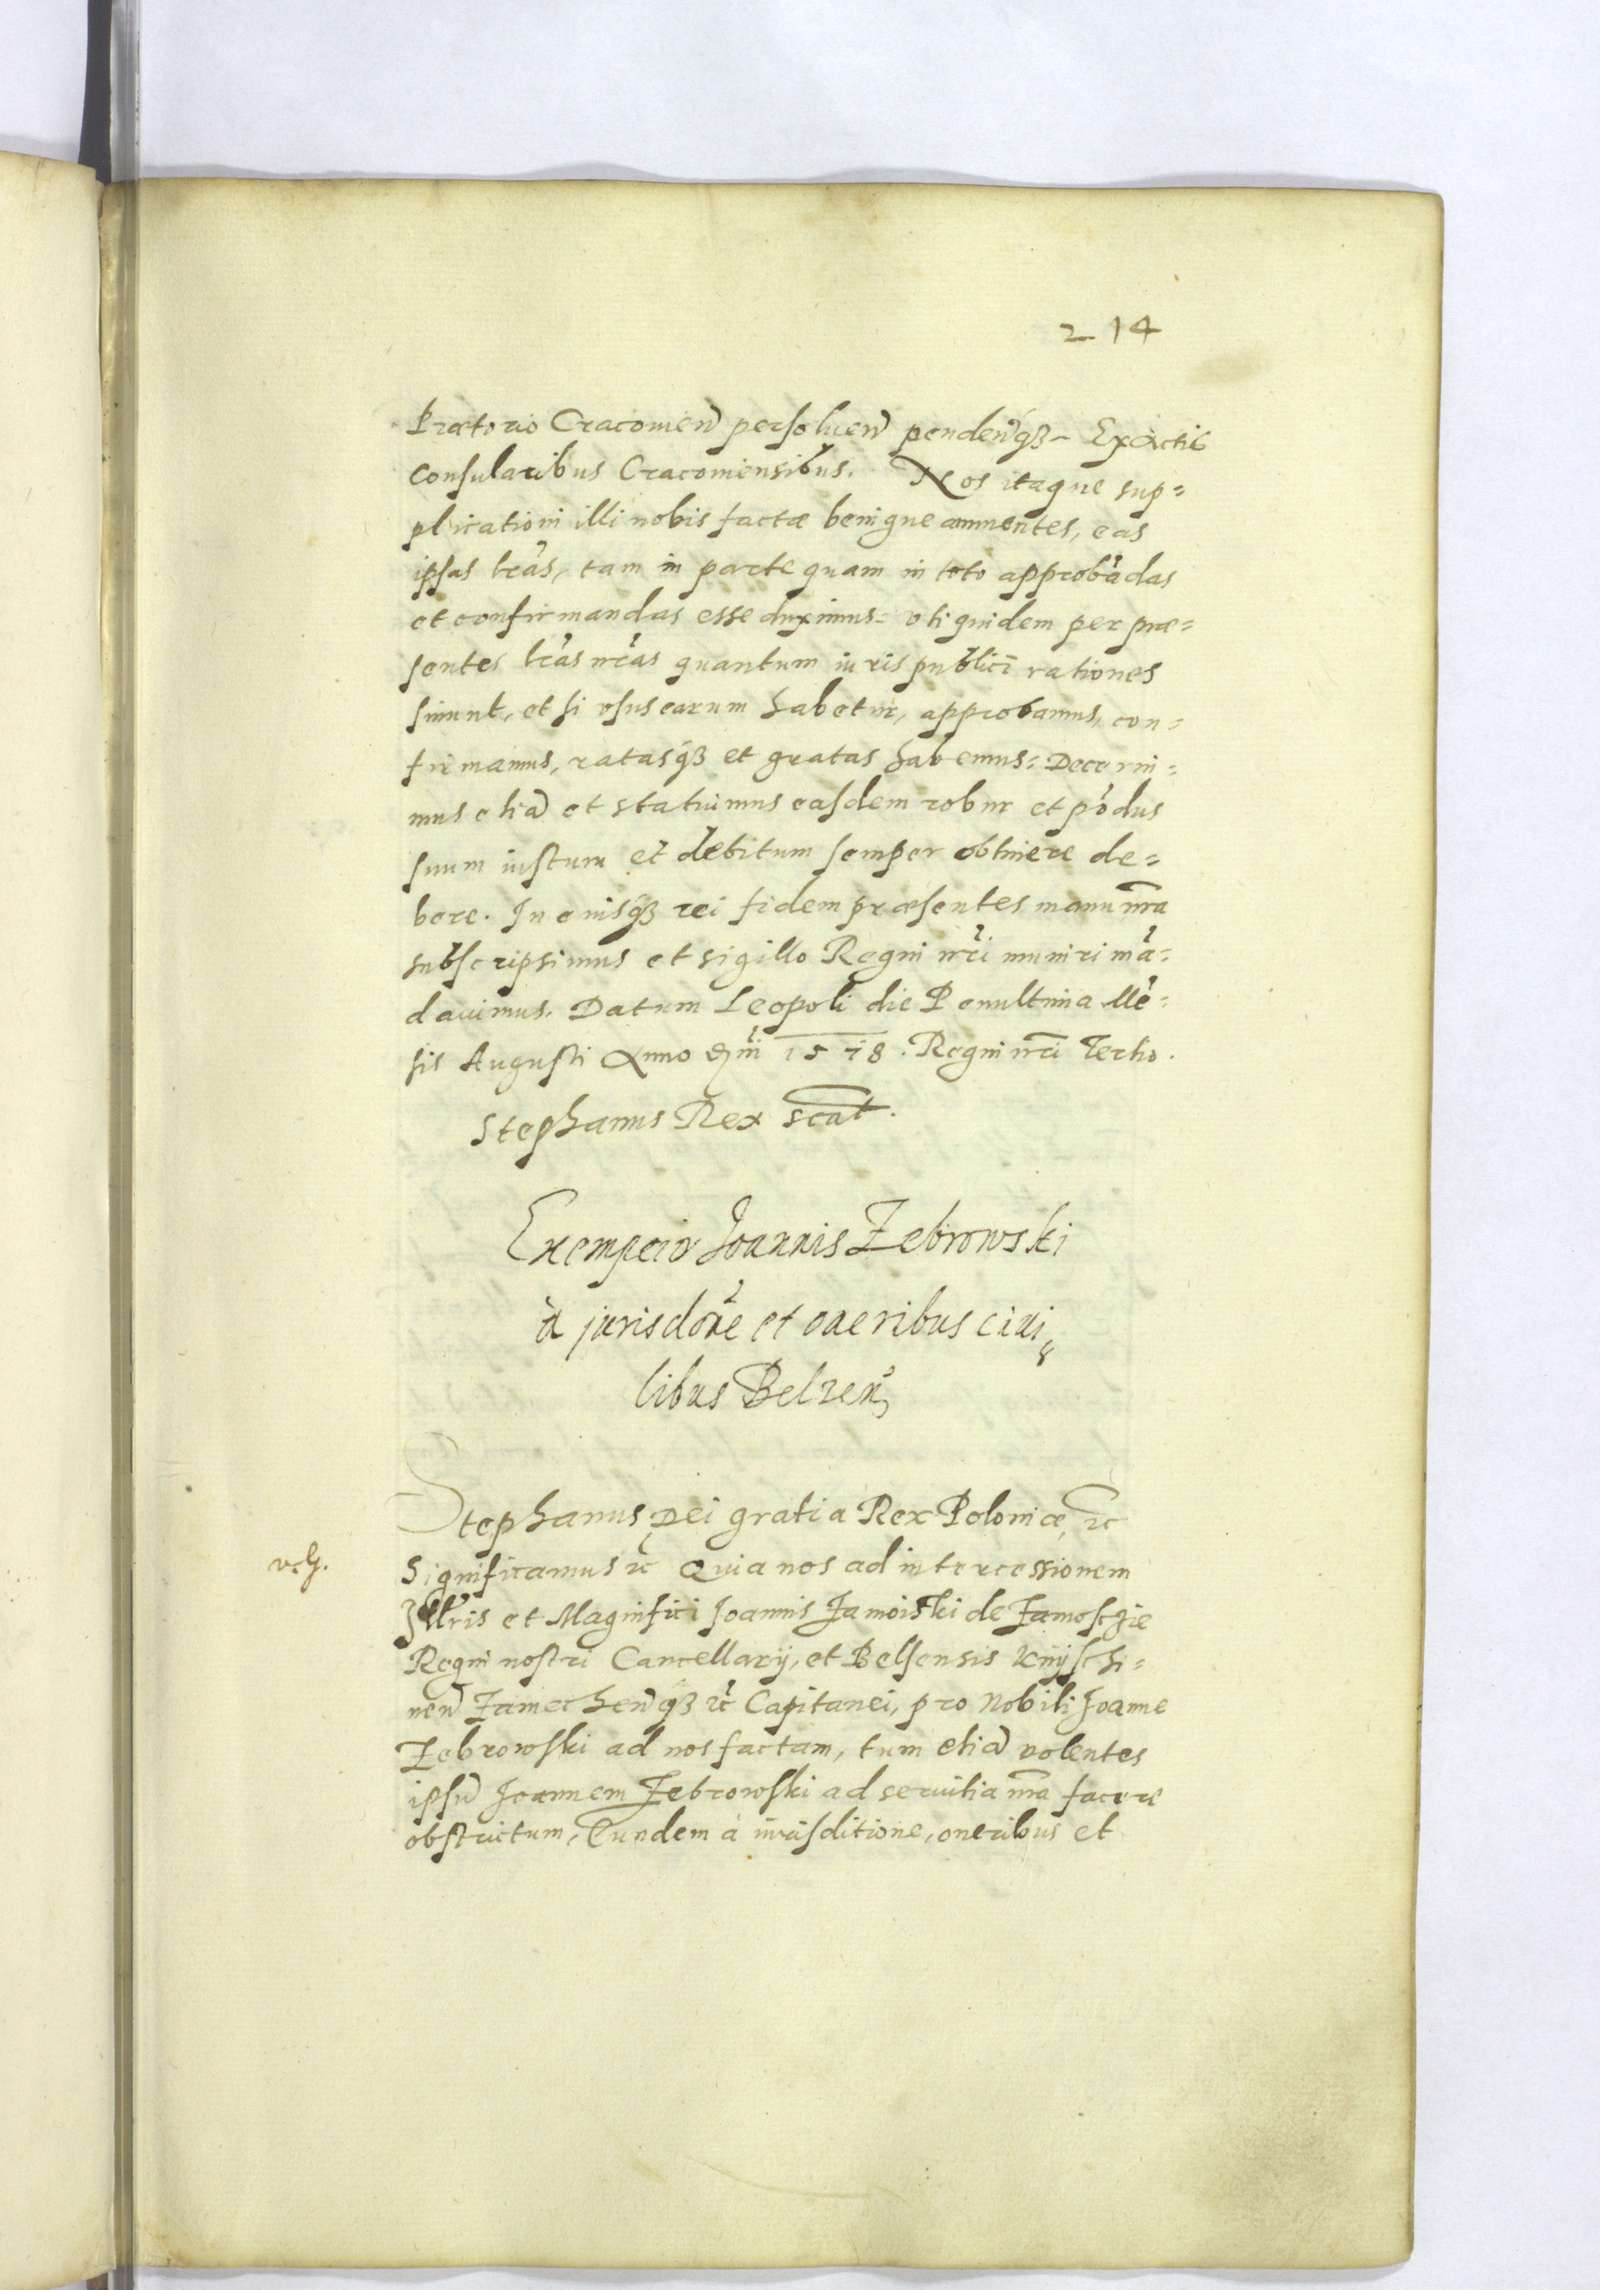 214
Prætorio Cracovien persoluen pendenqȝ Ex Actis
Consularibus Cracouiensibus. Nos itaque sup=
plicationi illi nobis factæ benigne annuentes, eas
ipsas lrãs, tam in parte quam in toto approbãdas
et confirmandas esse duximus= vti quidem per præ=
sentes lrãs nrãs quantum iuris publici rationes
sinunt, et si vsus earum habetur, approbamus, con=
firmamus, ratasqȝ et gratas habemus= Decerni=
mus etiã et statuimus easdem robur et põdus
suum iustum et debitum semper obtinere de=
bere. In cuiusqȝ rei fidem præsentes manu nr̃a
subscripsimus et sigillo Regni nrĩ muniri mã=
dauimus. Datum Leopoli die Penultima Mẽ=
sis Augusti Anno Dnĩ 1578. Regni nrĩ Tertio.
Stephanus Rex scãt.
Exempcio Joannis Zebrowski
à jurisdoñe et oneribus ciui=
libus Belzeñ
Stephanus Dei gratia Rex Poloniæ, ꝛc
Significamus ꝛc Quia nos ad intercessionem
Illr̃is et Magnifici Joannis Zamoiski de Zamosczie
Regni nostri Cancellarij, et Belsensis Knijschi=
neñ Zamecheñqȝ ꝛc Capitanei, pro Nobili Joanne
Zebrowski ad nos factam, tum etiã volentes
ipsũ Joannem Zebrowski ad seruitia nr̃a facere
obstrictum, Eundem à iurisditione, oneribus et